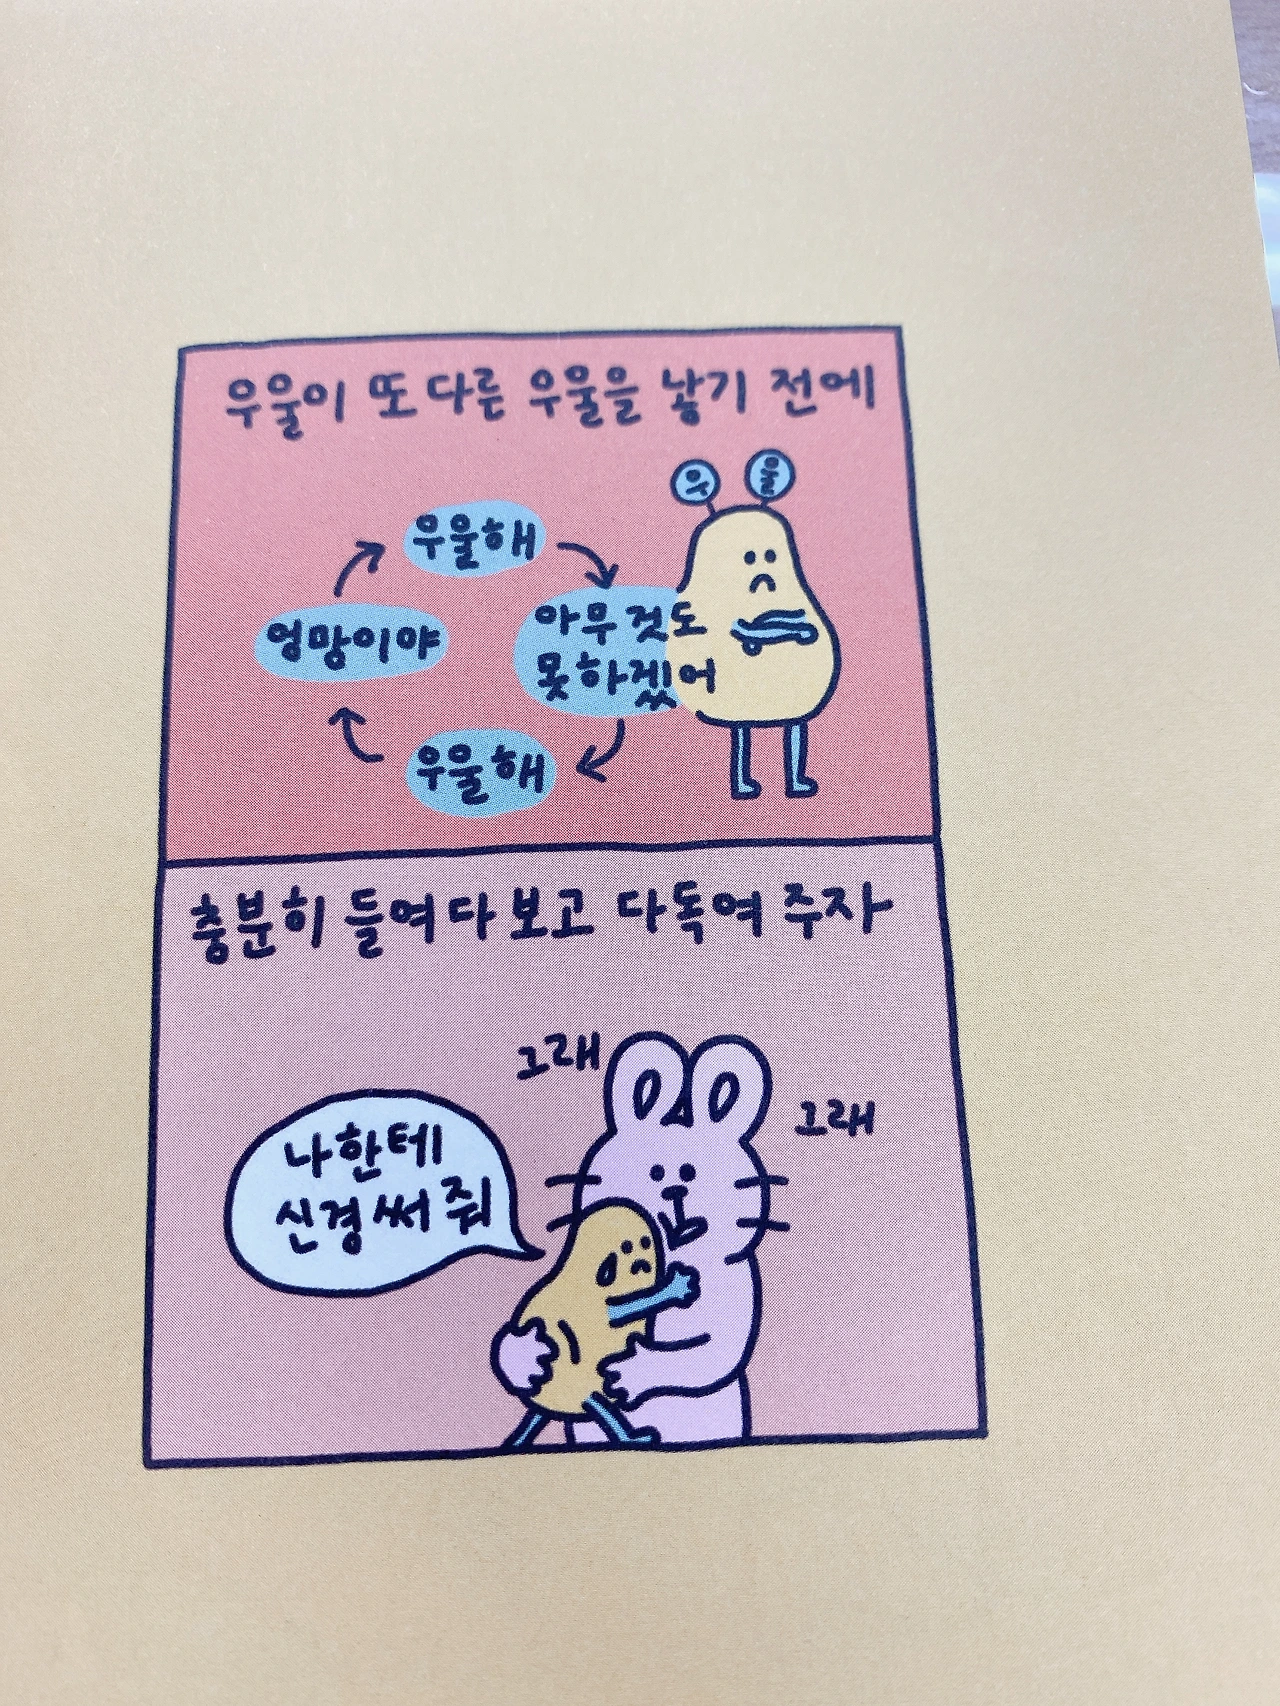 우울이 또 다른 우울을 낳기 전에
우 울
우울해
아무것도
못하겠어
우울해
엉망이야
충분히 들여다보고 다독여 주자
그래
그래
나한테
신경써줘